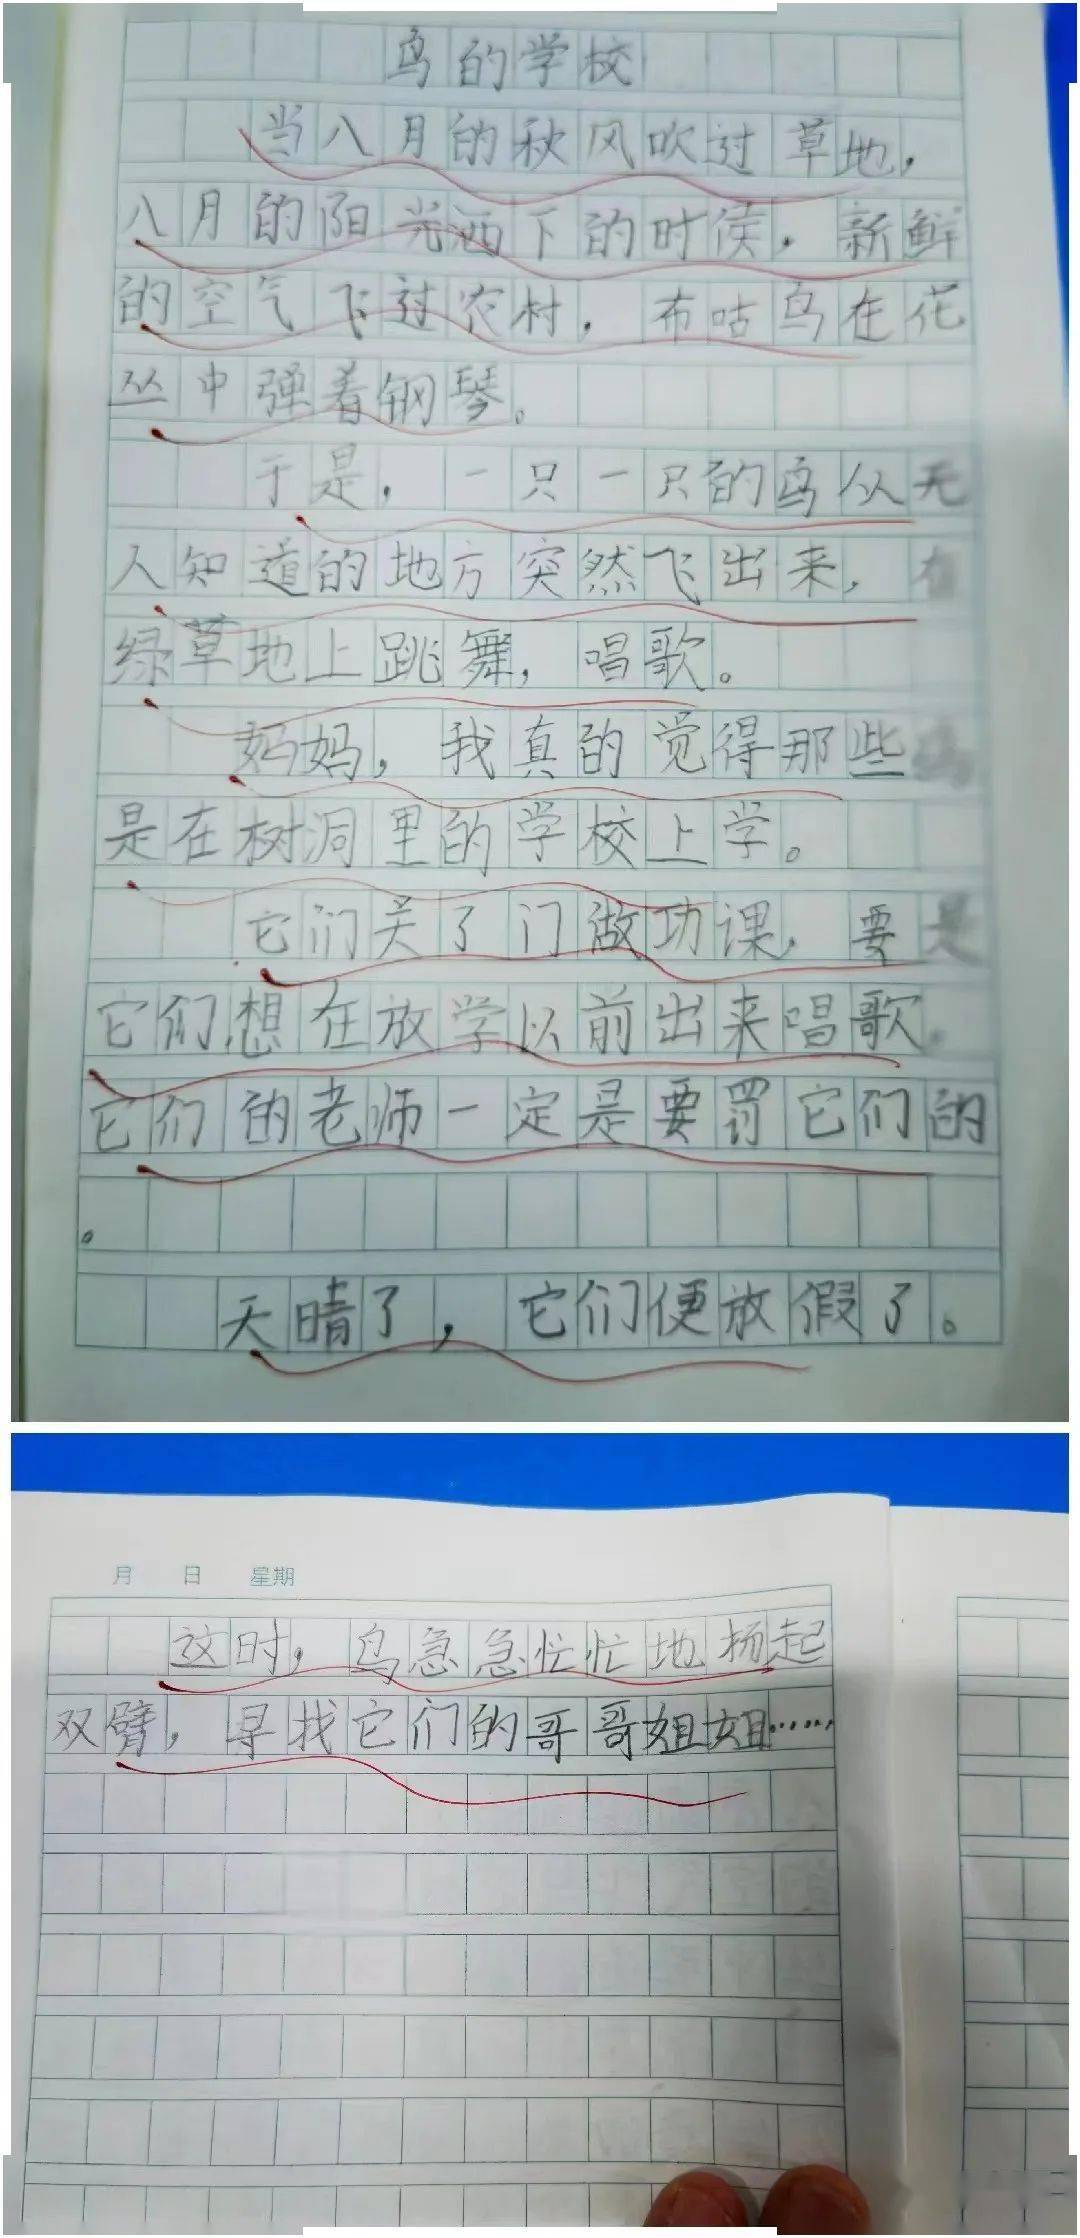 鸟的学校
当八月的秋风吹过草地，
八月的阳光洒下的时侯，新鲜
的空气飞过农村，布咕鸟在花
丛中弹着钢琴。
于是，一只一只的鸟从无
人知道的地方突然飞出来，在
绿草地上跳舞，唱歌。
妈妈，我真的觉得那些
是在树洞里的学校上学。
它们关了门做功课，要是
它们想在放学以前出来唱歌，
它们的老师一定是要罚它们的
。
天晴了，它们便放假了。
月 日 星期
这时，鸟急急忙忙地扬起
双臂，寻找它们的哥哥姐姐……